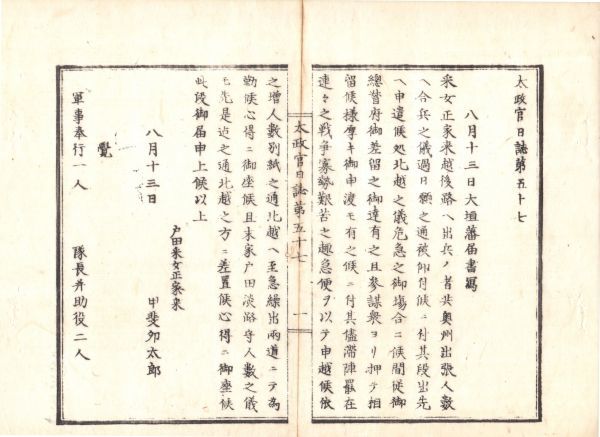 太政官日誌第五十七
八月十三日大垣藩届書寫
采女正家来越後路ヘ出兵ノ者共奥州出張人数
ヘ合兵之儀過日願之通被仰付候ニ付其段出先
ヘ申遣候処北越之儀危急之御場合ニ候間従御
總督府御差留之御達有之且参謀衆ヨリ押テ相
留候様厚キ御申渡モ有之候ニ付其儘滞陣罷在
連々之戦争寡勢艱苦之趣急便ヲ以テ申越候依
太政官日誌第五十七
一
之増人数別紙之通北越ヘ至急繰出両道ニテ為
勤候心得ニ御座候且末家戸田淡路守人数之儀
モ先是迠之通北越之方ニ差置候心得ニ御座候
此段御届申上候以上
戸田采女正家来
八月十三日
甲斐卯太郎
覺
軍事奉行一人
隊長并助役二人